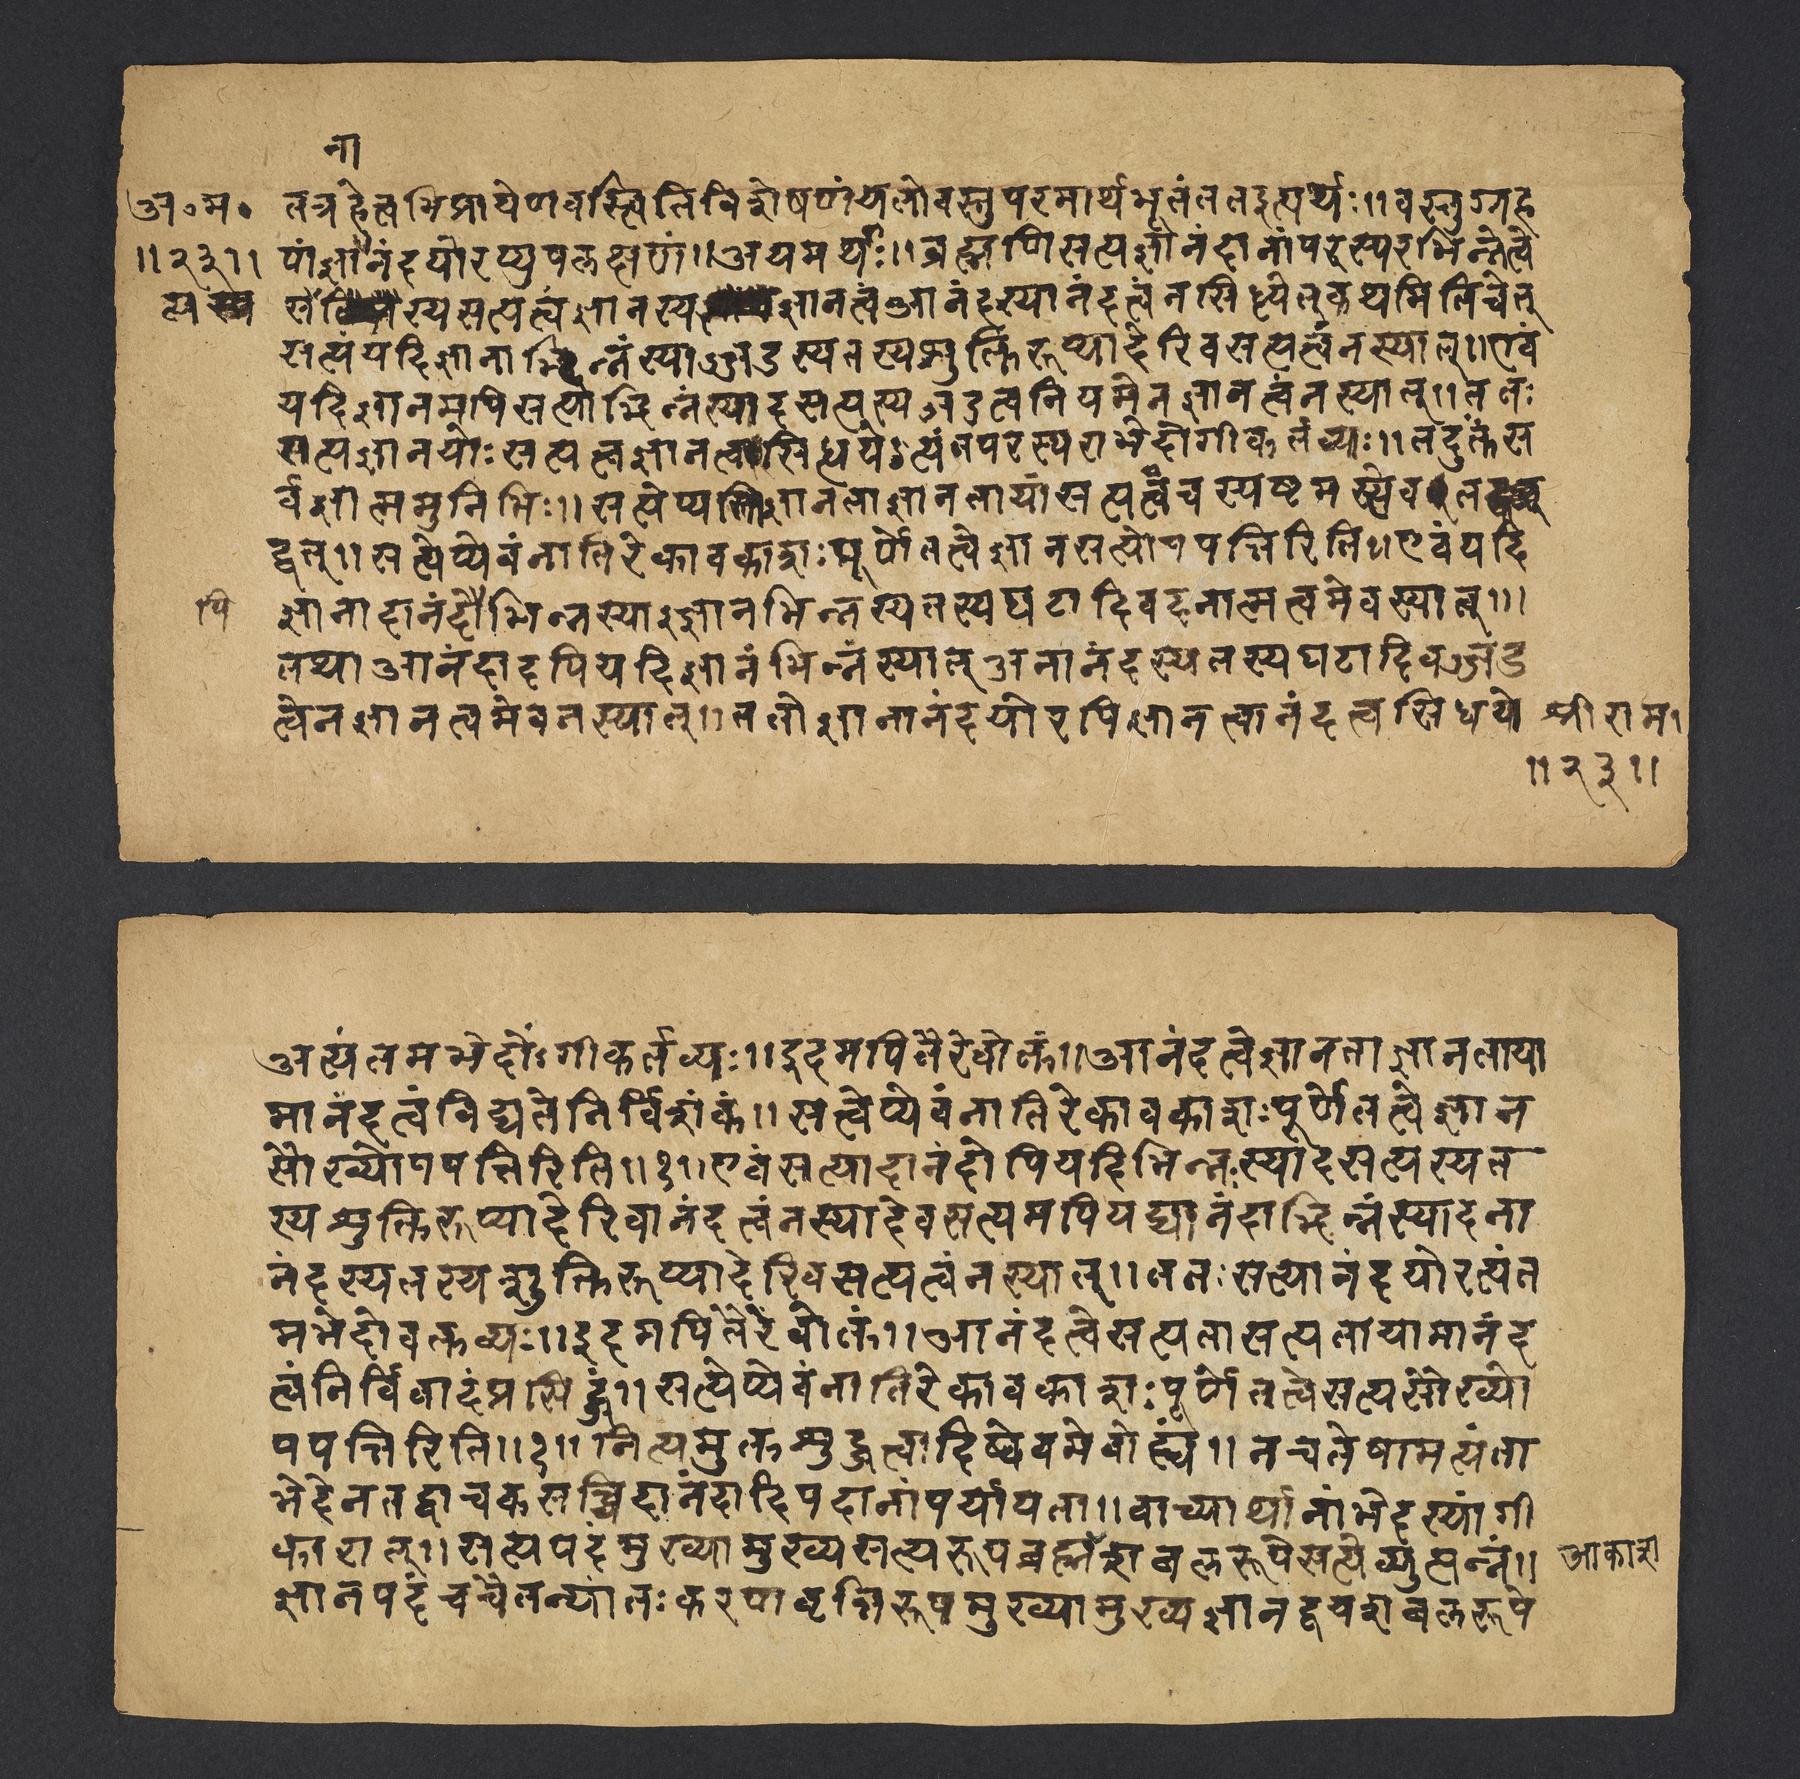 ना
अ॰म॰ तत्रहेत्वभिप्रायेणवस्त्वितिविशेषणंयतोवस्तुपरमार्थभूतंततइत्यर्थः॥वस्तुग्रह
॥२३॥ णंज्ञानंदयोरप्युपलक्षणं॥अयमर्थः॥ब्रह्मणिसत्यज्ञानंदानांपरस्परभिन्नत्वे
त्यस्य सत्यत्वंज्ञानस्यज्ञानत्वंआनंदस्यानंदत्वंनसिध्येत्कथमितिचेत्
सत्यंयदिज्ञानाद्भिन्नंस्याज्जडस्यतस्यशुक्तिरूप्यादेरिवसत्यत्वंनस्यात्॥एवं
यदिज्ञानमपिसत्याद्भिन्नंस्यादसत्यस्यजडत्वनियमेनज्ञानत्वंनस्यात्॥ततः
सत्यज्ञानयोःसत्यत्वज्ञानत्वसिध्यर्थेऽत्यंतपरस्पराभेदोंगीकर्तव्यः॥तदुक्तंस
र्वज्ञात्ममुनिभिः॥सत्येप्यस्तिज्ञानताज्ञानतायांसत्यत्वंचस्पष्टमस्त्येव
द्वत्॥सत्येप्येवंनातिरेकावकाशःपूर्णेतत्वेज्ञानसत्योपपत्तिरिति॥एवंयदि
पि ज्ञानादानंदोभिन्नस्याज्ज्ञानभिन्नस्यतस्यघटादिवदनात्मत्वमेवस्यात्॥।
तथाआनंदादपियदिज्ञानंभिन्नंस्यात्अनानंदस्यतस्यघटादिवज्जड
त्वेनज्ञानत्वमेवनस्यात्॥ततोज्ञानानंदयोरपिज्ञानत्वानंदत्वसिधये श्रीराम।
॥२३॥
अत्यंतमभेदोंऽगीकर्तव्यः॥इदमपितैरेवोक्तं॥आनंदत्वेज्ञानताज्ञानताया
मानंदत्वंविद्यतेनिर्विशंकं॥सत्वेप्येवंनातिरेकावकाशःपूर्णेतत्वेज्ञान
सौख्योपपत्तिरिति॥१॥एवंसत्यादानंदोपियदिभिन्नःस्यादसत्यस्यत
स्यशुक्तिरूप्यादेरिवानंदत्वंनस्यादेवसत्यमपियद्यानंदाद्भिन्नंस्यादना
नंदस्यतस्यशुक्तिरूप्यादेरिवसत्यत्वंनस्यात्॥ततःसत्यानंदयोरत्यंत
मभेदोवक्तव्यः॥इदमपितैरेवोक्तं॥आनंदत्वेसत्यतासत्यतायामानंद
त्वंनिर्विवादंप्रसिद्धं॥सत्येप्येवंनातिरेकावकाशःपूर्णेतत्वेसत्यसौख्यो
पपत्तिरिति॥१॥नित्यमुक्तशुद्धत्वादिष्वेवमेवोह्यं॥नचतेषामत्यंता
भेदेनतद्वाचकसच्चिदानंदादिपदानांपर्यायता॥वाच्यार्थानांभेदस्यांगी
कारात्॥सत्यपदंमुख्यामुख्यसत्यरूपब्रह्मशबलरूपेसत्येव्युत्पन्नं॥ आकाश
ज्ञानपदंचचैतन्यांतःकरणवृत्तिरूपमुख्यामुख्यज्ञानद्वयशबलरूपे